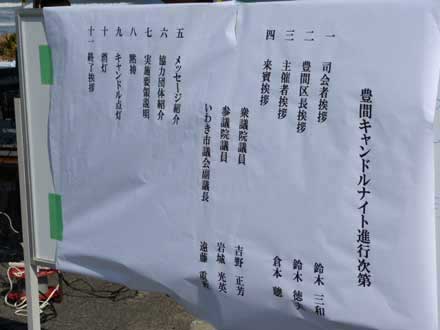 豊間キャンドルナイト進行次第
一 司会者挨拶 鈴木 三和
二 豊間区長挨拶 鈴木 徳
三 主催者挨拶 倉本 聰
四 来賓挨拶
衆議院議員 吉野 正芳
参議院議員 岩城 光英
いわき市議会副議長 遠藤 重
五 メッセージ紹介
六 協力団体紹介
七 実施要領説明
八 黙祷
九 キャンドル点灯
十 消灯
十一 終了挨拶